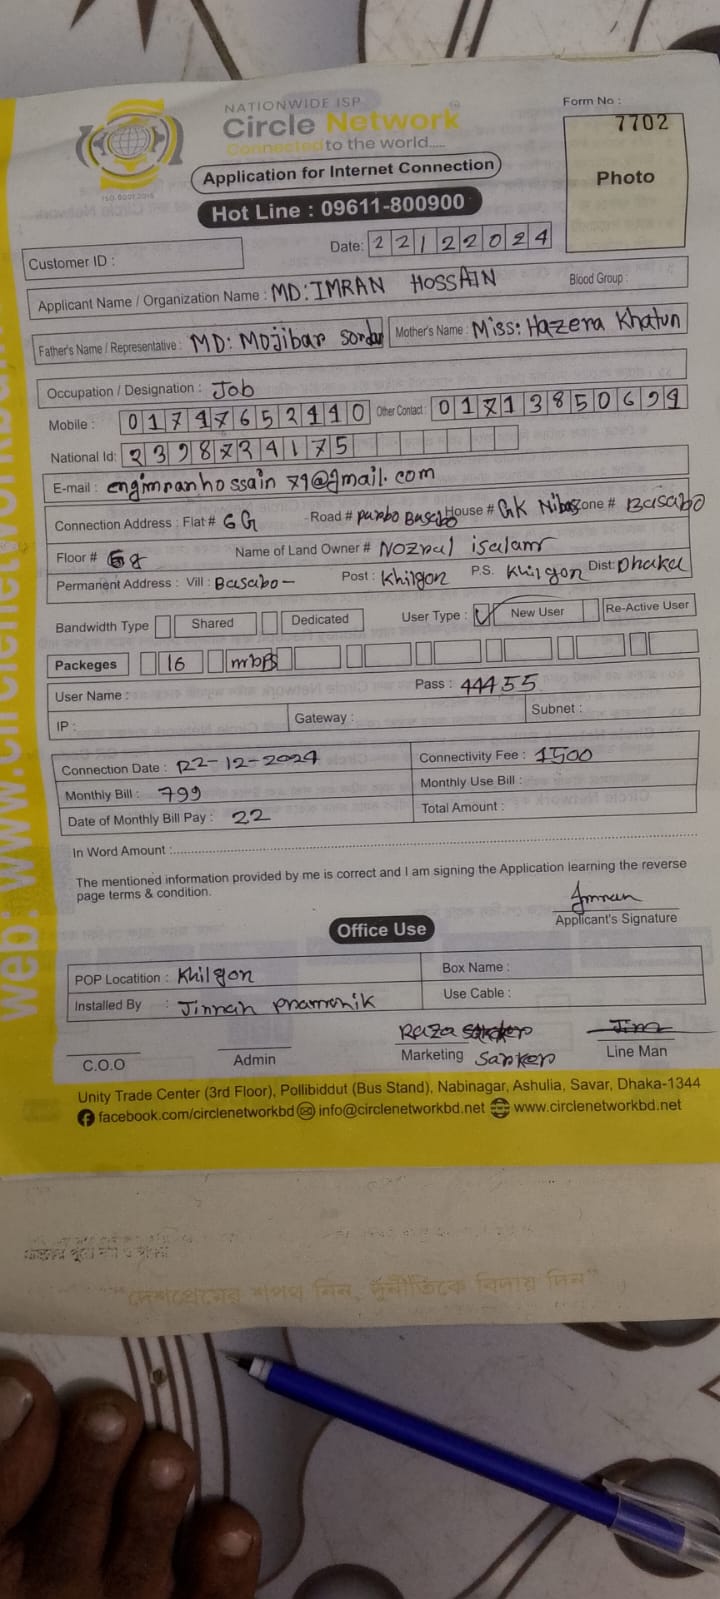 NATIONWIDE ISP
Circle Network
Connected to the world.....
Application for Internet Connection
Hot Line : 09611-800900
Form No :
7702
Photo
ISO.9001:2015
Date: 22122024
Customer ID :
Applicant Name / Organization Name : MD:IMRAN HOSSAIN Blood Group :
Father's Name / Representative : MD: Mojibar Sordar Mother's Name : Miss: Hazera Khatun
Occupation / Designation : Job
Mobile : Other Contact :
National Id:
E-mail :
Connection Address : Flat# 6G Road # purbo Basabo House # GK Nibas Zone # Basabo
Floor # Name of Land Owner #
Permanent Address : Vill : Basabo- Post : Khilgon P.S. Khilgon Dist: Dhaka
Bandwidth Type Shared Dedicated User Type : New User Re-Active User
Packeges 16 mbps
User Name : Pass : 44455
IP : Gateway : Subnet :
Connection Date : 22-12-2024 Connectivity Fee : 1500
Monthly Bill : 799 Monthly Use Bill :
Date of Monthly Bill Pay : 22 Total Amount :
In Word Amount :
The mentioned information provided by me is correct and I am signing the Application learning the reverse
page terms & condition.
Imran
Applicant's Signature
Office Use
POP Locatition : Khilgon Box Name :
Installed By : Jinnah pramanik Use Cable :
Raza Sarker
C.O.O Admin Marketing Line Man
Unity Trade Center (3rd Floor), Pollibiddut (Bus Stand), Nabinagar, Ashulia, Savar, Dhaka-1344
facebook.com/circlenetworkbd info@circlenetworkbd.net www.circlenetworkbd.net
"দেশপ্রেমের শপথ নিন, দুর্নীতিকে বিদায় দিন"